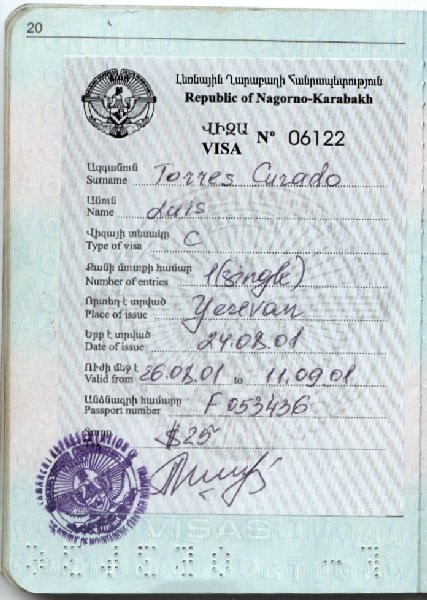 20
Լեռնային Ղարաբաղի Հանրապետություն
Republic of Nagorno-Karabakh
ՎԻԶԱ
VISA Nº 06122
Ազգանուն
Surname Torres Curado
Անուն
Name Luis
Վիզայի տեսակը
Type of visa C
Քանի մուտքի համար
Number of entries 1(single)
Որտեղ է տրված
Place of issue Yerevan
Երբ է տրված
Date of issue 24.08.01
Ուժի մեջ է
Valid from 26.08.01 to 11.09.01
Անձնագրի համարը
Passport number F053436
$25
VISAS